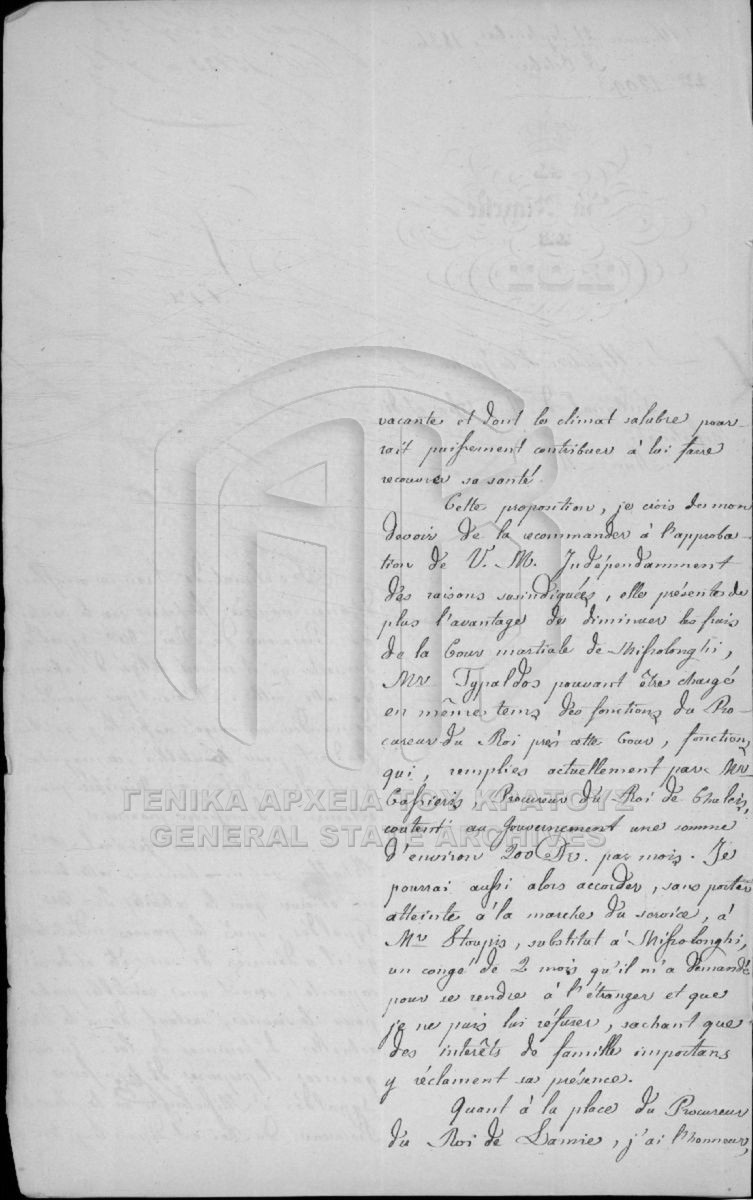 vacante et dont le climat salubre pour-
rait puissement contribuer à lui faire
recouvrer sa santé.
Cette proposition, je crois de mon
devoir de la recommander à l'approba-
tion de V. M. Indépendamment
des raisons susindiquées, elle présente de
plus l'avantage de diminuer les frais
de la Cour martiale de Missolonghi,
Mr Typaldos pouvant être chargé
en même tems des fonctions du Pro-
cureur du Roi près cette Cour, fonctions
qui, remplies actuellement par Mr
Procureur du Roi de Chalcis,
coutent au Gouvernement une somme
d'environ 200 Dr. par mois. Je
pourrai aussi alors accorder, sans porter
atteinte à la marche du service, à
Mr Stoupis, substitut à Missolonghi,
un congé de 2 mois qu'il m'a demandé
pour se rendre à l'étranger et que
je ne puis lui réfuser, sachant que
des interêts de famille importans
y réclament sa présence.
Quant à la place du Procureur
du Roi de Lamie, j'ai l'honneur,
ΓΕΝΙΚΑ ΑΡΧΕΙΑ ΤΟΥ ΚΡΑΤΟΥΣ
GENERAL STATE ARCHIVES